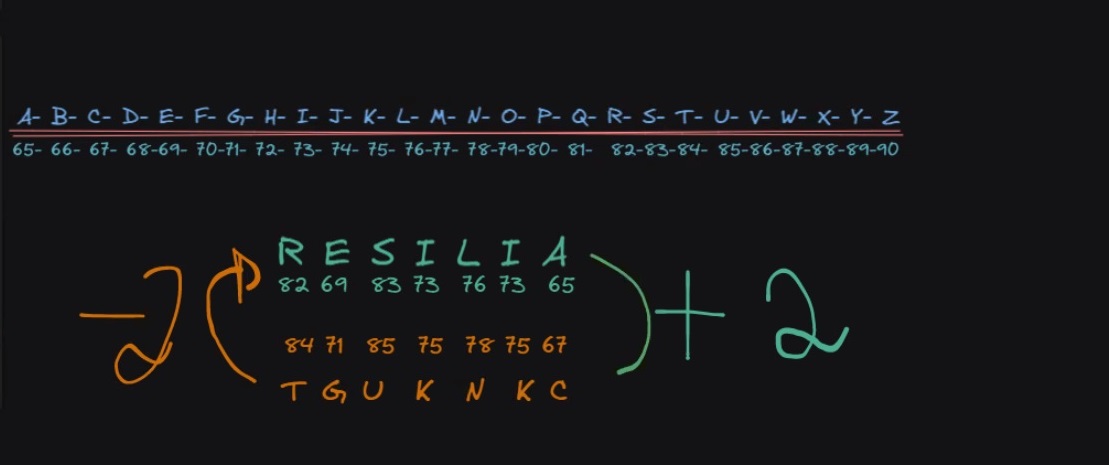 A- B- C- D- E- F- G- H- I- J- K- L- M- N- O- P- Q- R- S- T- U- V- W- X- Y- Z
65- 66- 67- 68-69- 70-71- 72- 73- 74- 75- 76-77- 78-79-80- 81- 82-83-84- 85-86-87-88-89-90
R E S I L I A
82 69 83 73 76 73 65
-2 + 2
84 71 85 75 78 75 67
T G U K N K C